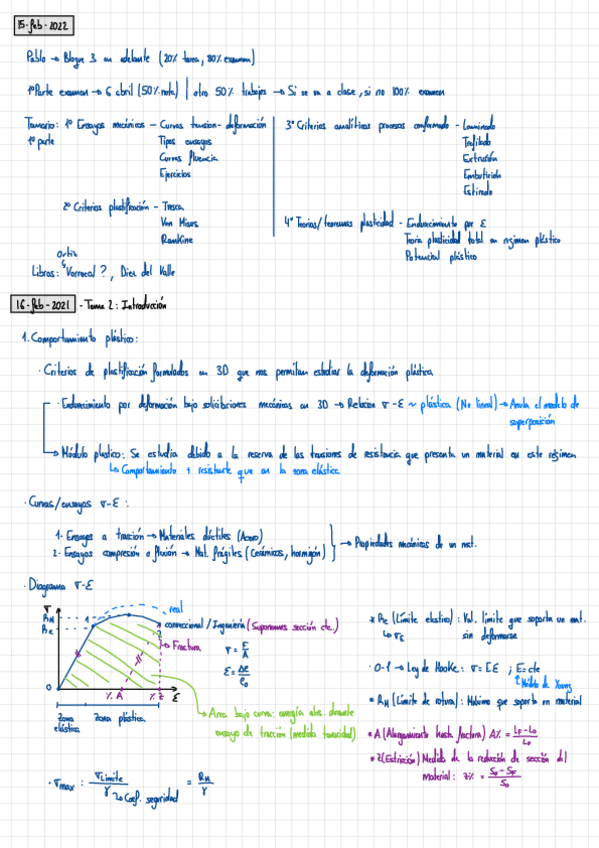 15-feb-2022
Pablo → Bloque 3 en adelante (20% tarea, 80% examen)
1ªParte examen → 6 abril (50% nota) | otro 50% trabajos → Si se va a clase, si no 100% examen
Temario: 1º Ensayos mecánicos - Curvas tension-deformación
1ª parte
Tipos ensayos
Curvas fluencia
Ejercicios
2º Criterios plastificación - Tresca
Von Mises
RanKine
3º Criterios analíticos procesos conformado - Laminado
Trefilado
Extrusión
Embutición
Estirado
4º Teorías/teoremas plasticidad - Endurecimiento por ε
Teoría plasticidad total en régimen plástico
Potencial plástico
Ortiz
Libros: Berrocal?, Diez del Valle
16-feb-2021 - Tema 2: Introducción
1. Comportamiento plástico:
· Criterios de plastificación formulados en 3D que nos permitan estudiar la deformación plástica
· Endurecimiento por deformación bajo solicitaciones mecánicas en 3D → Relación σ-ε ~ plástica (No lineal) → Anula el modelo de
superposición
→ Módulo plástico: Se estudia debido a la reserva de las tensiones de resistencia que presenta un material en este régimen
↳ Comportamiento + resistente que en la zona elástica
· Curvas/ensayos σ-ε:
1- Ensayos a tracción → Materiales dúctiles (Acero)
2- Ensayos compresión o flexión → Mat. frágiles (Cerámicos, hormigón)
→ Propiedades mecánicas de un mat.
· Diagrama σ-ε
σ
RM
Re
0
1
2
real
convencional/Ingeniería (Suponemos sección cte.)
Fractura
σ = F/A
ε = Δe/e₀
% A
% Z
ε
Zona elástica
Zona plástica
→ Area bajo curva: energía abs. durante
ensayo de tracción (medida tenacidad)
* Re (Límite elástico): Val. límite que soporta un mat.
↳ σE
sin deformarse
* 0-1 → Ley de Hooke: σ=Eε ; E=cte
↳ Módulo de Young
* RM (Límite de rotura): Máximo que soporta un material
* A (Alargamiento hasta fractura) A% = (LF-L₀)/L₀
* Z (Estricción) Medida de la reducción de sección del
material: Z% = (S₀-SF)/S₀
· σmax : σLímite/γ = RM/γ
↳ Coef. seguridad